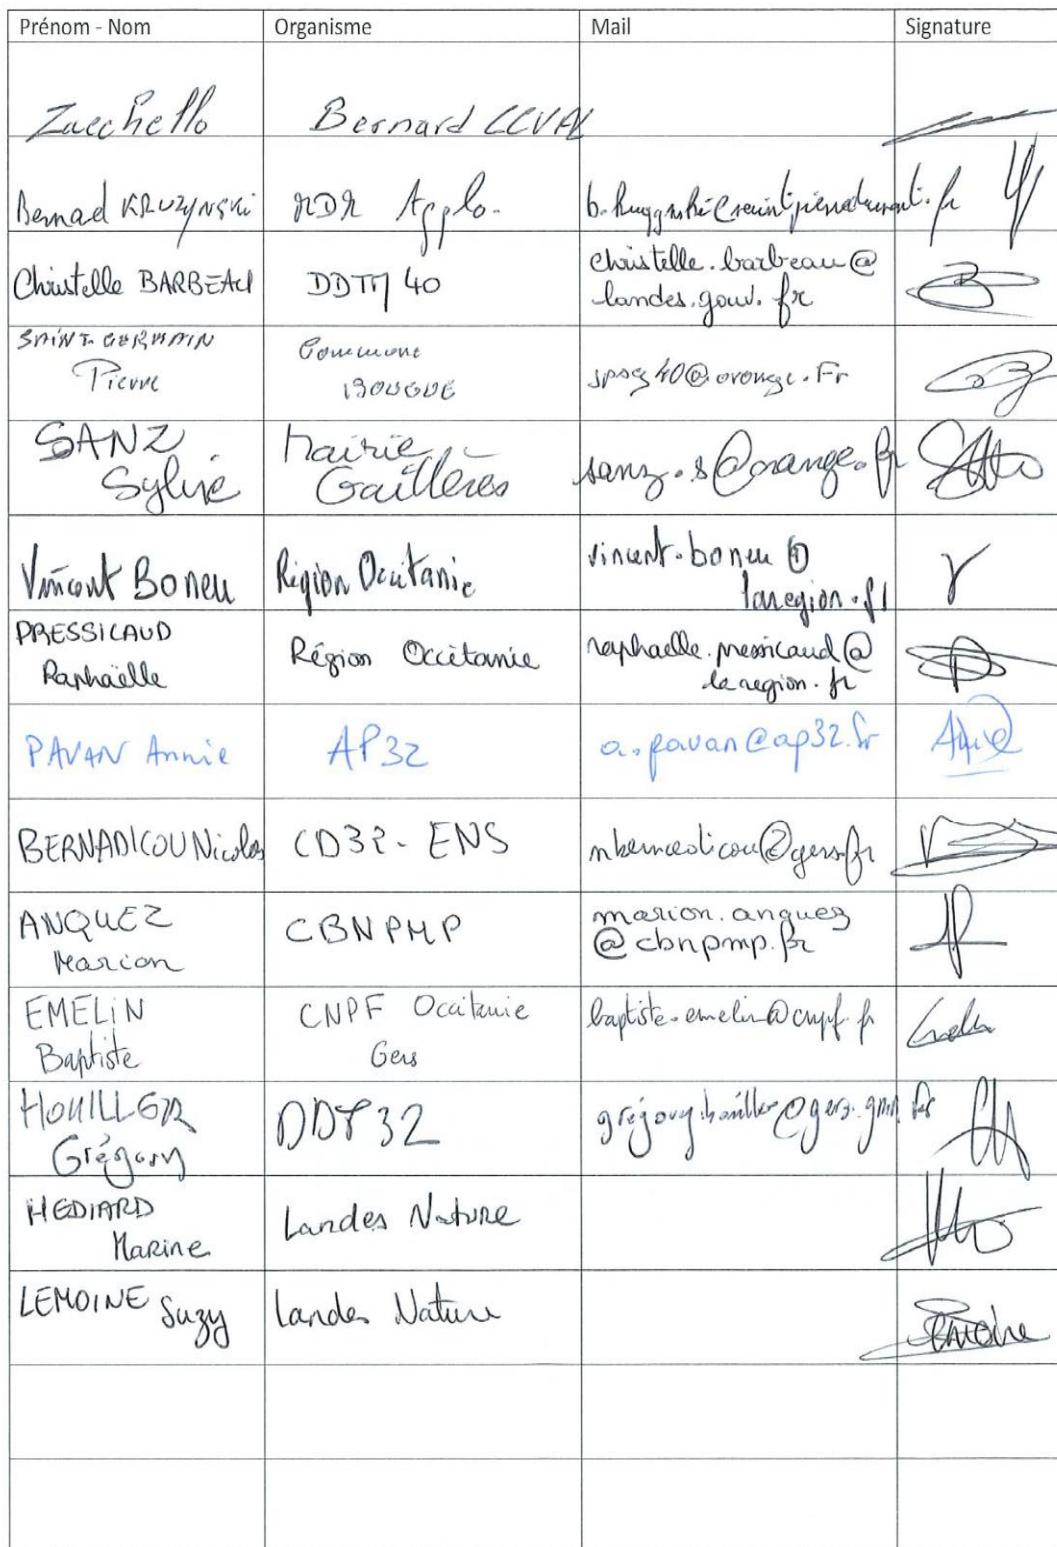 Prénom - Nom Organisme Mail Signature
Zacchello Bernard CCVAL
Bernad KRUZYNSKI Applo.
Christelle BARBEAU DDTM 40 christelle.barbeau@
landes.gouv.fr
SAINT-GERMAIN Commune
Pierre BOUGUE spsg40@orange.Fr
SANZ Mairie
Sylvie Gaillères sanz.s@orange.fr
Vincent Boneu Région Occitanie vincent.boneu@
laregion.fr
PRESSICAUD
Raphaëlle Région Occitanie raphaelle.pressicaud@
laregion.fr
PAVAN Annie AP32 a.pavan@ap32.fr
BERNADICOU Nicolas CD32-ENS nbernadicou@gers.fr
ANQUEZ CBNPMP marion.anquez
Marion @cbnpmp.fr
EMELIN CNPF Occitanie baptiste.emelin@cnpf.fr
Baptiste Gers
HOUILLER
Grégory DDT32
HEDIARD
Marine Landes Nature
LEMOINE Suzy Landes Nature